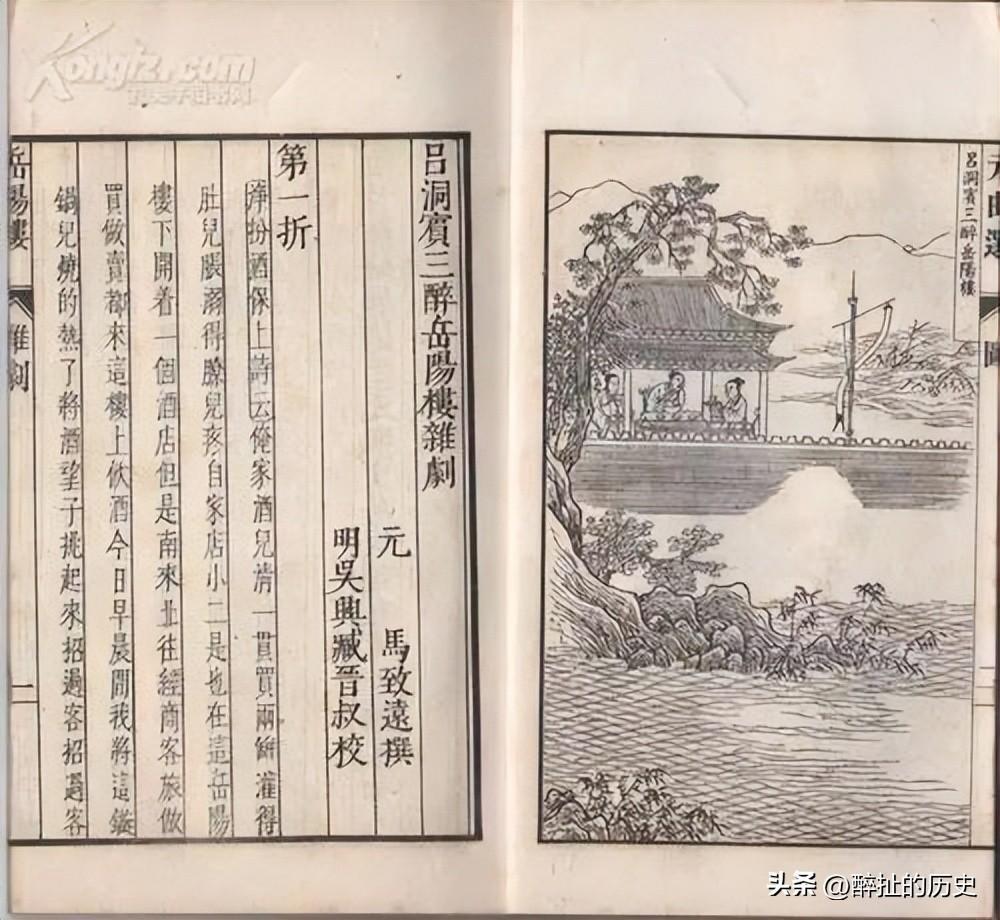 元曲選
圖
呂洞賓三醉岳陽樓
呂洞賓三醉岳陽樓雜劇
元 馬致遠撰
明吳興臧晉叔校
第一折
淨扮酒保上詩云俺家酒兒清一貫買兩缾灌得
肚兒脹溺得臊兒疼自家店小二是也在這岳陽
樓下開着一個酒店但是南來北往經商客旅做
買做賣都來這樓上飲酒今日早晨間我將這鏇
鍋兒燒的熱了將酒望子挑起來招過客招過客
岳陽樓
雜劇
一
Kongfz.com
头条 @醉扯的历史